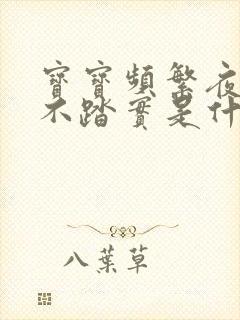 寶寶頻繁夜
不踏實是什
八葉草